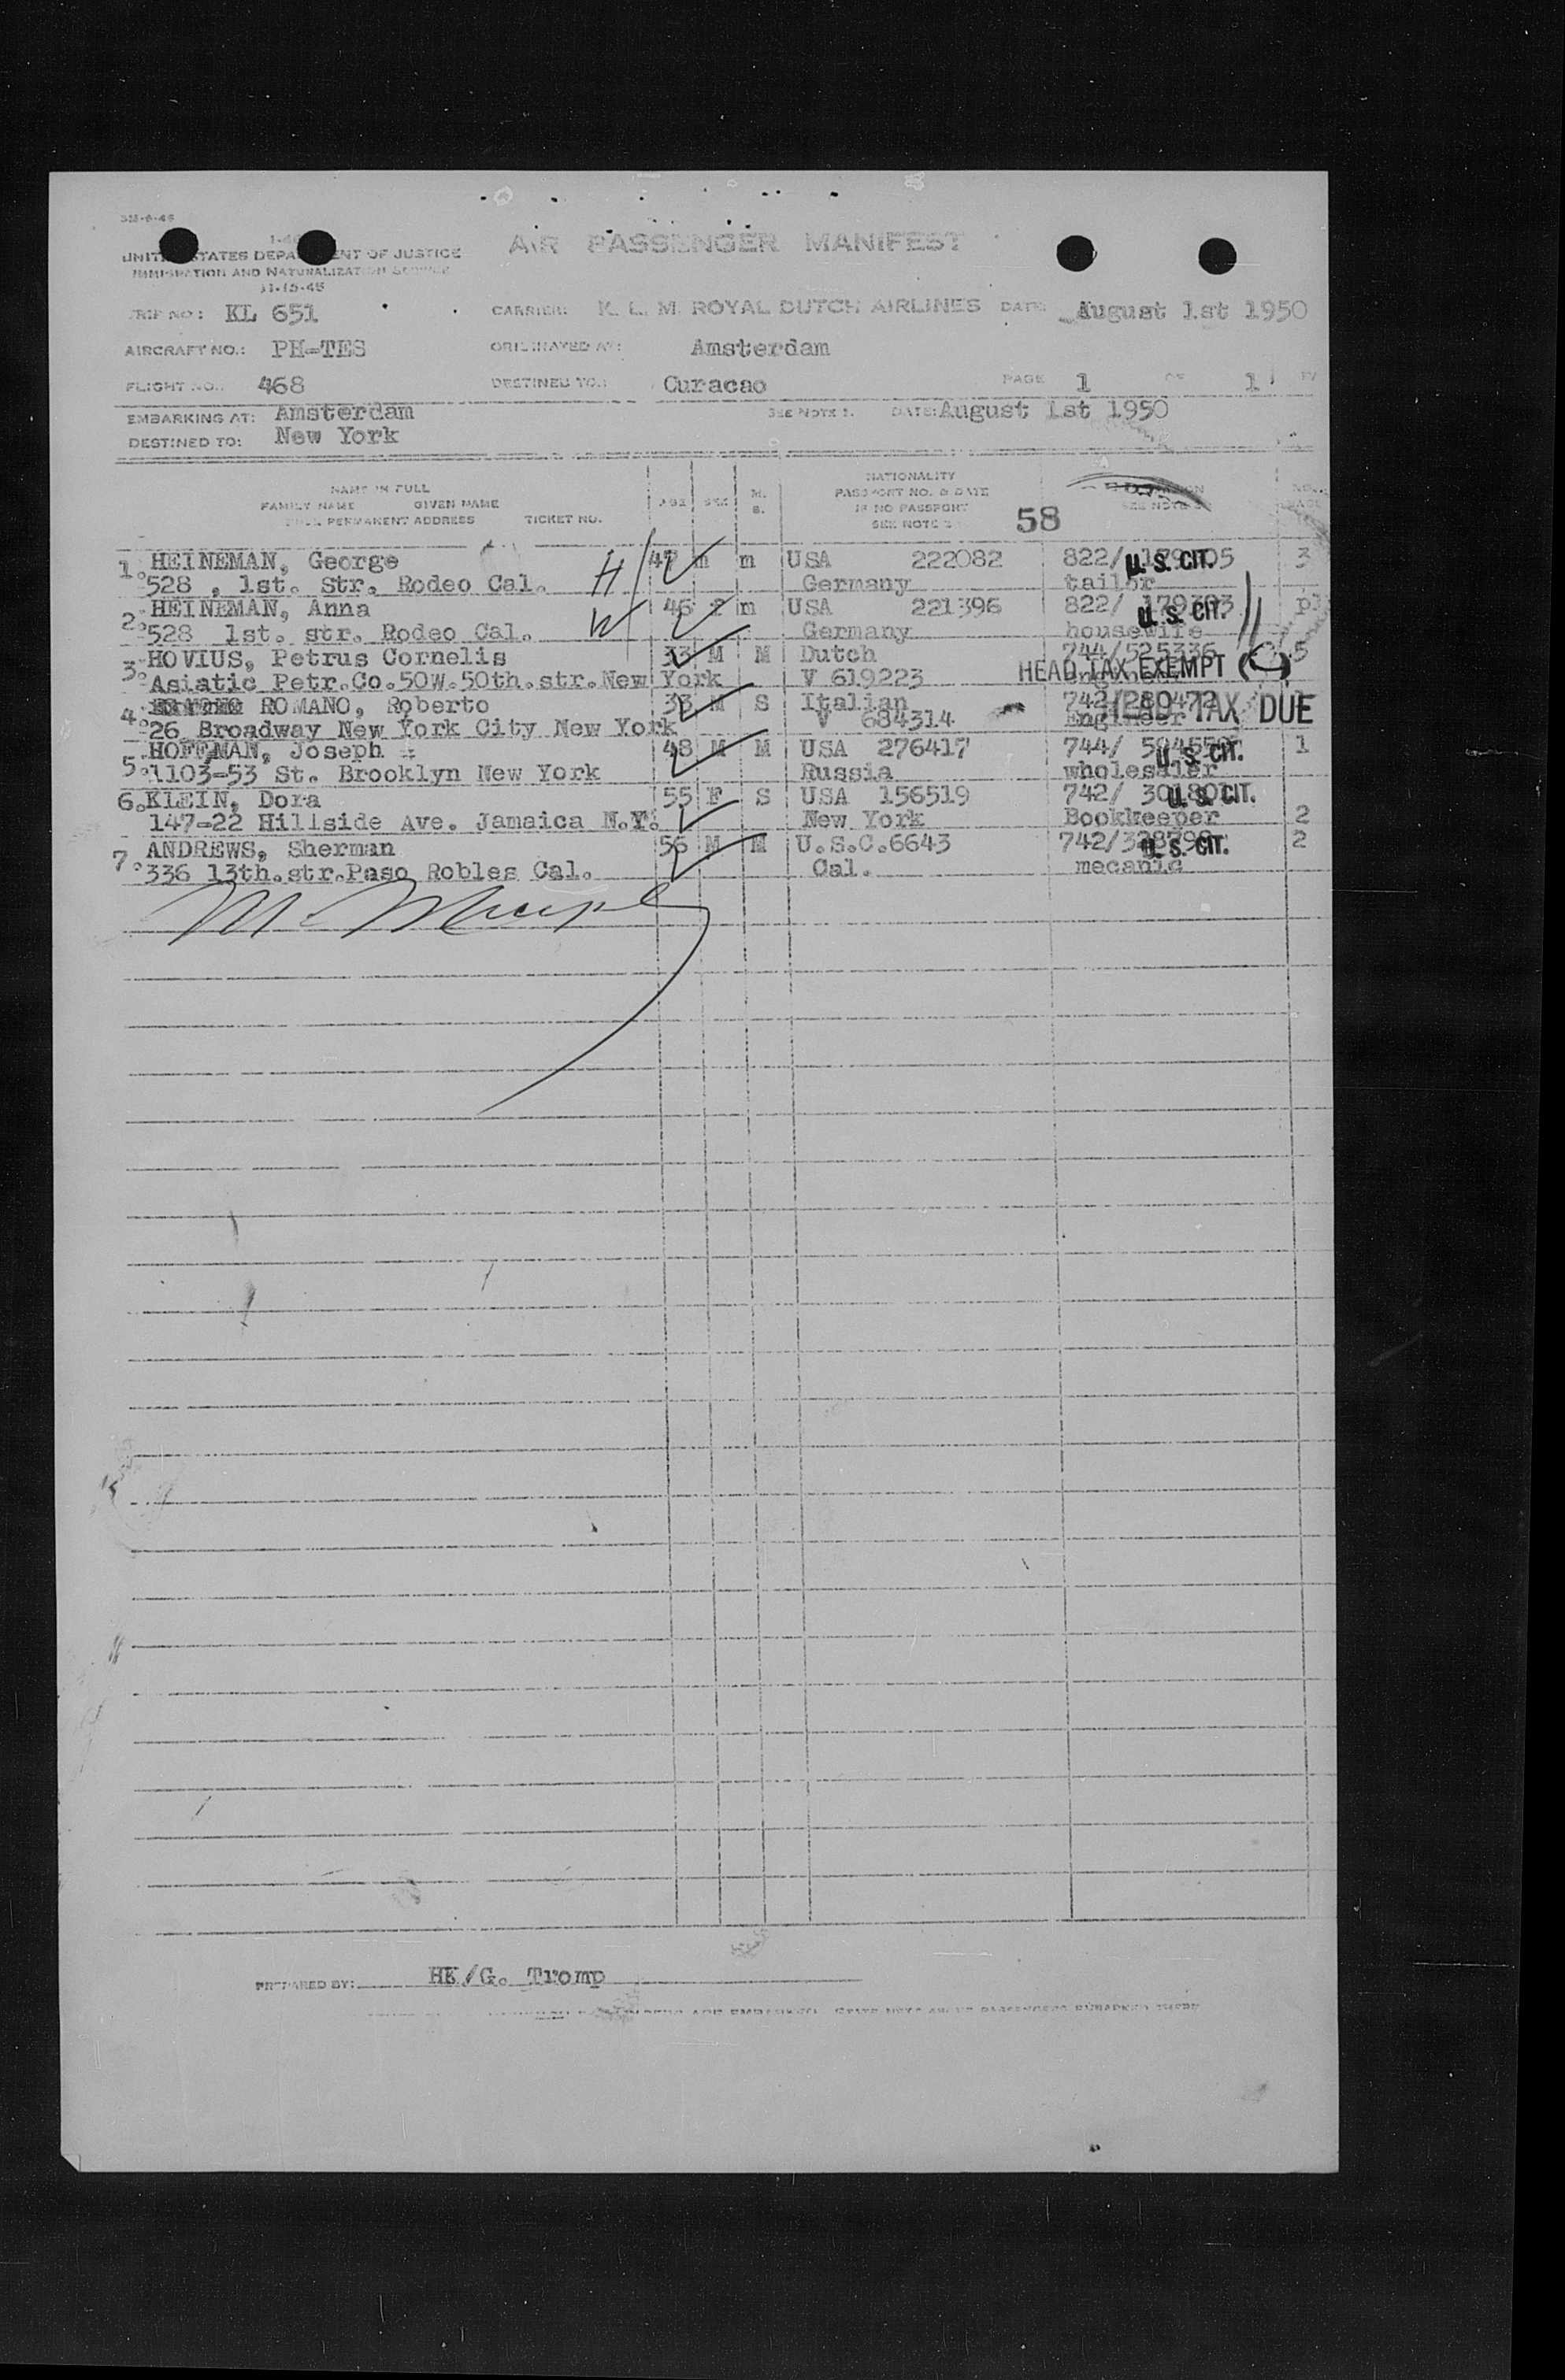 AIR PASSENGER MANIFEST
UNITED STATES DEPARTMENT OF JUSTICE
IMMIGRATION AND NATURALIZATION SERVICE
11-15-45
TRIP NO: KL 651 CARRIER: K. L. M. ROYAL DUTCH AIRLINES DATE: August 1st 1950
AIRCRAFT NO.: PH-TES ORIGINATED AT: Amsterdam
FLIGHT NO.: 468 DESTINED TO: Curacao PAGE 1 OF 1
EMBARKING AT: Amsterdam SEE NOTE 1. DATE: August 1st 1950
DESTINED TO: New York
NAME IN FULL
FAMILY NAME GIVEN NAME
FULL PERMANENT ADDRESS TICKET NO.
AGE SEX M. S.
NATIONALITY
PASSPORT NO. & DATE
IF NO PASSPORT
SEE NOTE
58
1. HEINEMAN, George H 47 m m USA 222082 822/ U. S. CIT. 3
528 , 1st. str. Rodeo Cal. Germany tailor
2. HEINEMAN, Anna W 46 f m USA 221396 822/ U. S. CIT.
528 1st. str. Rodeo Cal. Germany housewife
3. HOVIUS, Petrus Cornelis 33 M M Dutch 744/525336 5
Asiatic Petr.Co.50W.50th.str.New York V 619223 HEAD TAX EXEMPT
4. ROMANO, Roberto 33 M S Italian 742/
26 Broadway New York City New York V 684314 Engineer HEAD TAX DUE
5. HOFFMAN, Joseph 48 M M USA 276417 744/ U. S. CIT. 1
1103-53 St. Brooklyn New York Russia wholesaler
6. KLEIN, Dora 55 F S USA 156519 742/ U. S. CIT.
147-22 Hillside Ave. Jamaica N.Y. New York Bookkeeper 2
7. ANDREWS, Sherman 56 M M U.S.C.6643 742/ U. S. CIT. 2
336 13th.str.Paso Robles Cal. Cal. mecanic
PREPARED BY: HE/G. Tromp